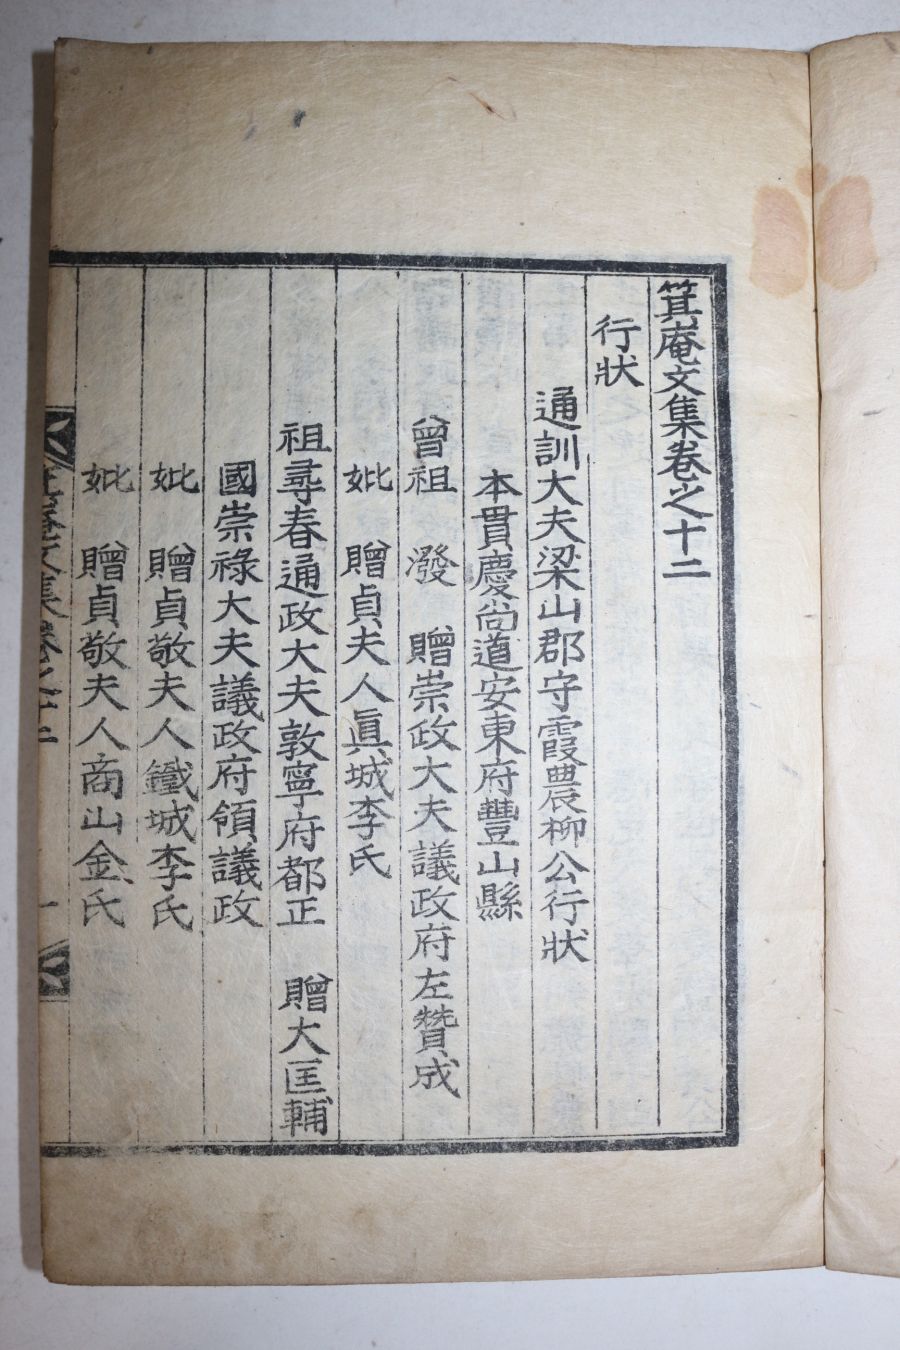 箕庵文集卷之十二
行狀
通訓大夫梁山郡守霞農柳公行狀
本貫慶尙道安東府豐山縣
曾祖 潑 贈崇政大夫議政府左贊成
妣 贈貞夫人眞城李氏
祖尋春通政大夫敦寧府都正 贈大匡輔
國崇祿大夫議政府領議政
妣 贈貞敬夫人鐵城李氏
妣 贈貞敬夫人商山金氏
箕庵文集卷之十二 一